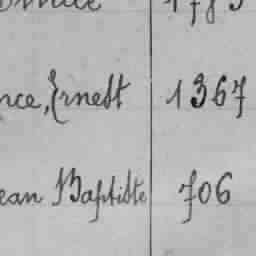 nce, Ernest 1367
ean Baptiste 706